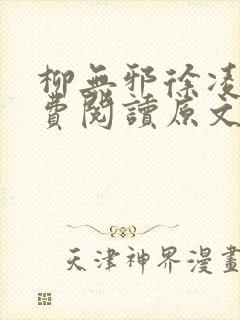 柳無邪徐凌
費閱讀原文
天津神界漫畫